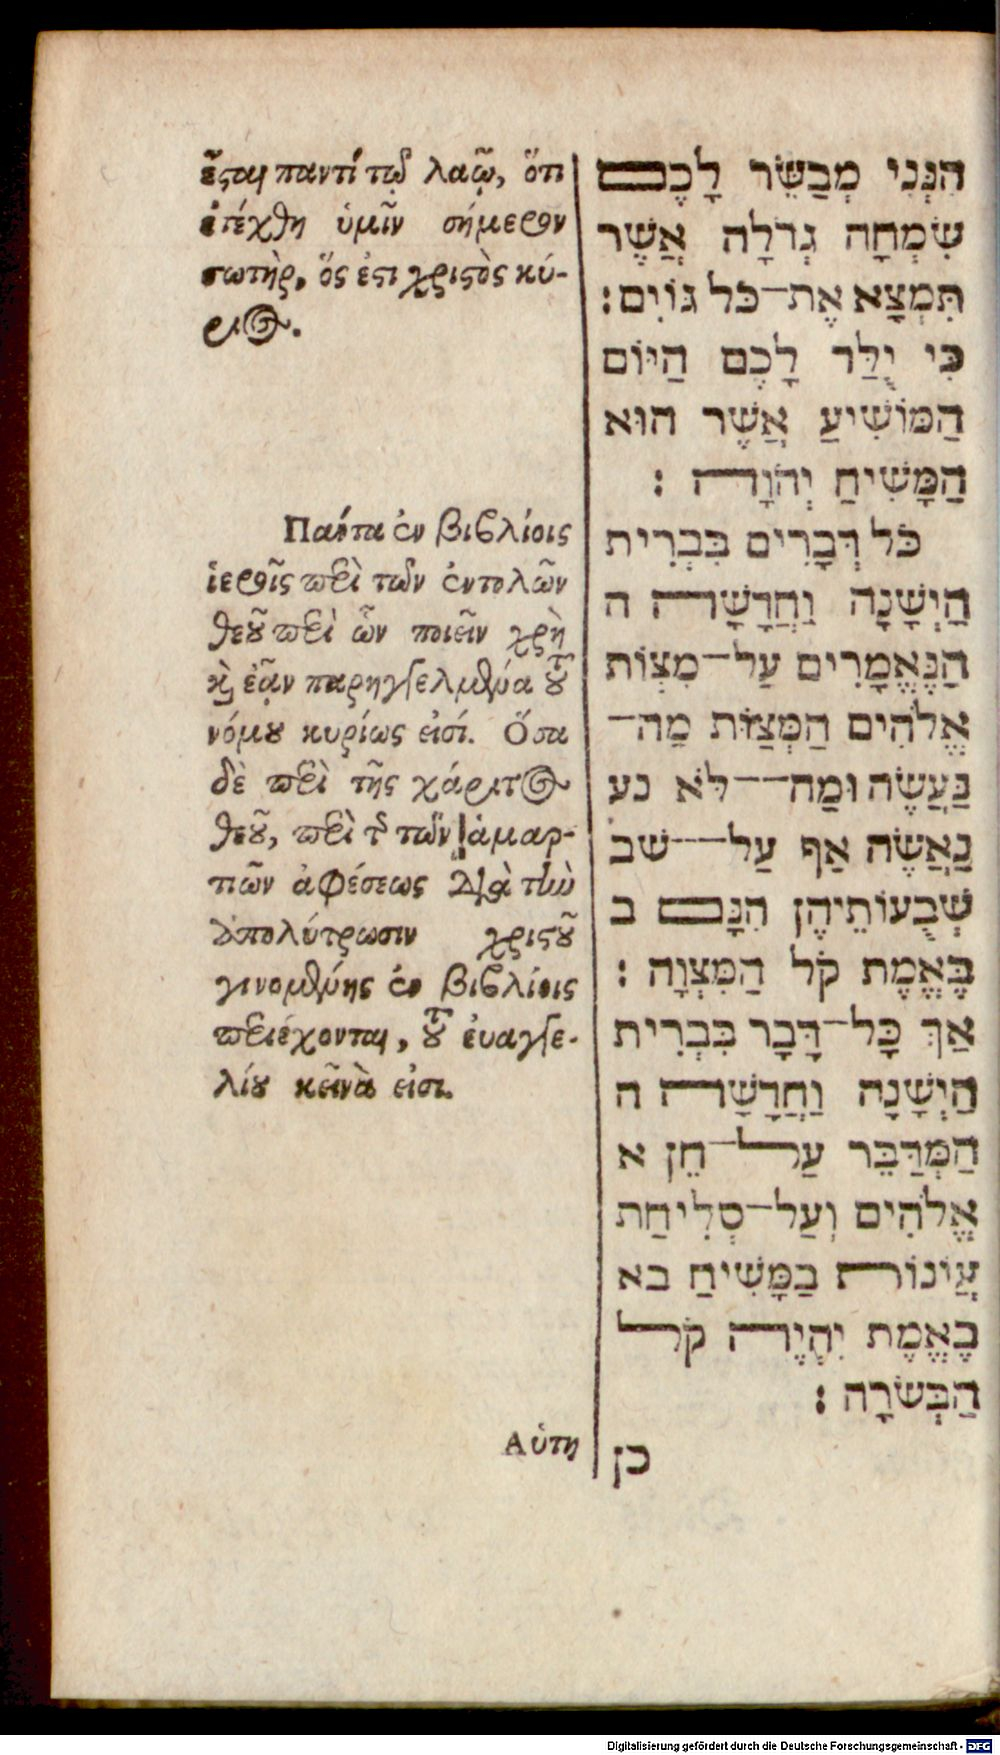 ἔςται παντί τῷ λαῷ, ὅτι
ἐτέχθη ὑμῖν σήμερον
σωτὴρ, ὅς ἐςι χριςὸς κύ-
ριος.
Πάντα ἐν βιβλίοις
ἱεροῖς περὶ τῶν ἐντολῶν
θεοῦ περὶ ὧν ποιεῖν χρὴ
καὶ ἐᾷν παρηγγελμένα τοῦ
νόμου κυρίως εἰσί. Ὅσα
δὲ περὶ τῆς χάριτος
θεοῦ, περὶ τῆς τῶν ἁμαρ-
τιῶν ἀφέσεως διὰ τὴν
ἀπολύτρωσιν χριςοῦ
γινομένης ἐν βιβλίοις
περιέχονται, τοῦ ἐυαγγε-
λίου κεῖνὰ εἰσι.
Αὑτη
הִנְּנִי מְבַשֵּׂר לָכֶם
שִׂמְחָה גְדֹלָה אֲשֶׁר
תִּמְצָא אֶת־כֹּל גּוֹיִם׃
כִּי יֻלַּד לָכֶם הַיּוֹם
הַמּוֹשִׁיעַ אֲשֶׁר הוּא
הַמָּשִׁיחַ יְהֹוָה ׃
כֹּל דְּבָרִים בִּבְרִית
הַיְשָׁנָה וַחֲדָשָׁה ה
הַנֶּאֱמָרִים עַל־מִצְוֹת
אֱלֹהִים הַמְּצַוֹּת מַה־
נַּעֲשֶׂה וּמַה־לֹּא נע
נַאֲשֶׂה אַף עַל־שב
שְׁבֻעוֹתֵיהֶן הִנָּם ב
בֶּאֱמֶת קֹל הַמִּצְוָה ׃
אַךְ כָּל־דָּבָר בִּבְרִית
הַיְשָׁנָה וַחֲדָשָׁה ה
הַמְּדַבֵּר עַל־חֵן א
אֱלֹהִים וְעַל־סְלִיחַת
עֲוֹנוֹת בַמָּשִׁיחַ בא
בֶּאֱמֶת יִהְיֶה קֹל
הַבְּשֹׂרָה ׃
כן
Digitalisierung gefördert durch die Deutsche Forschungsgemeinschaft - DFG